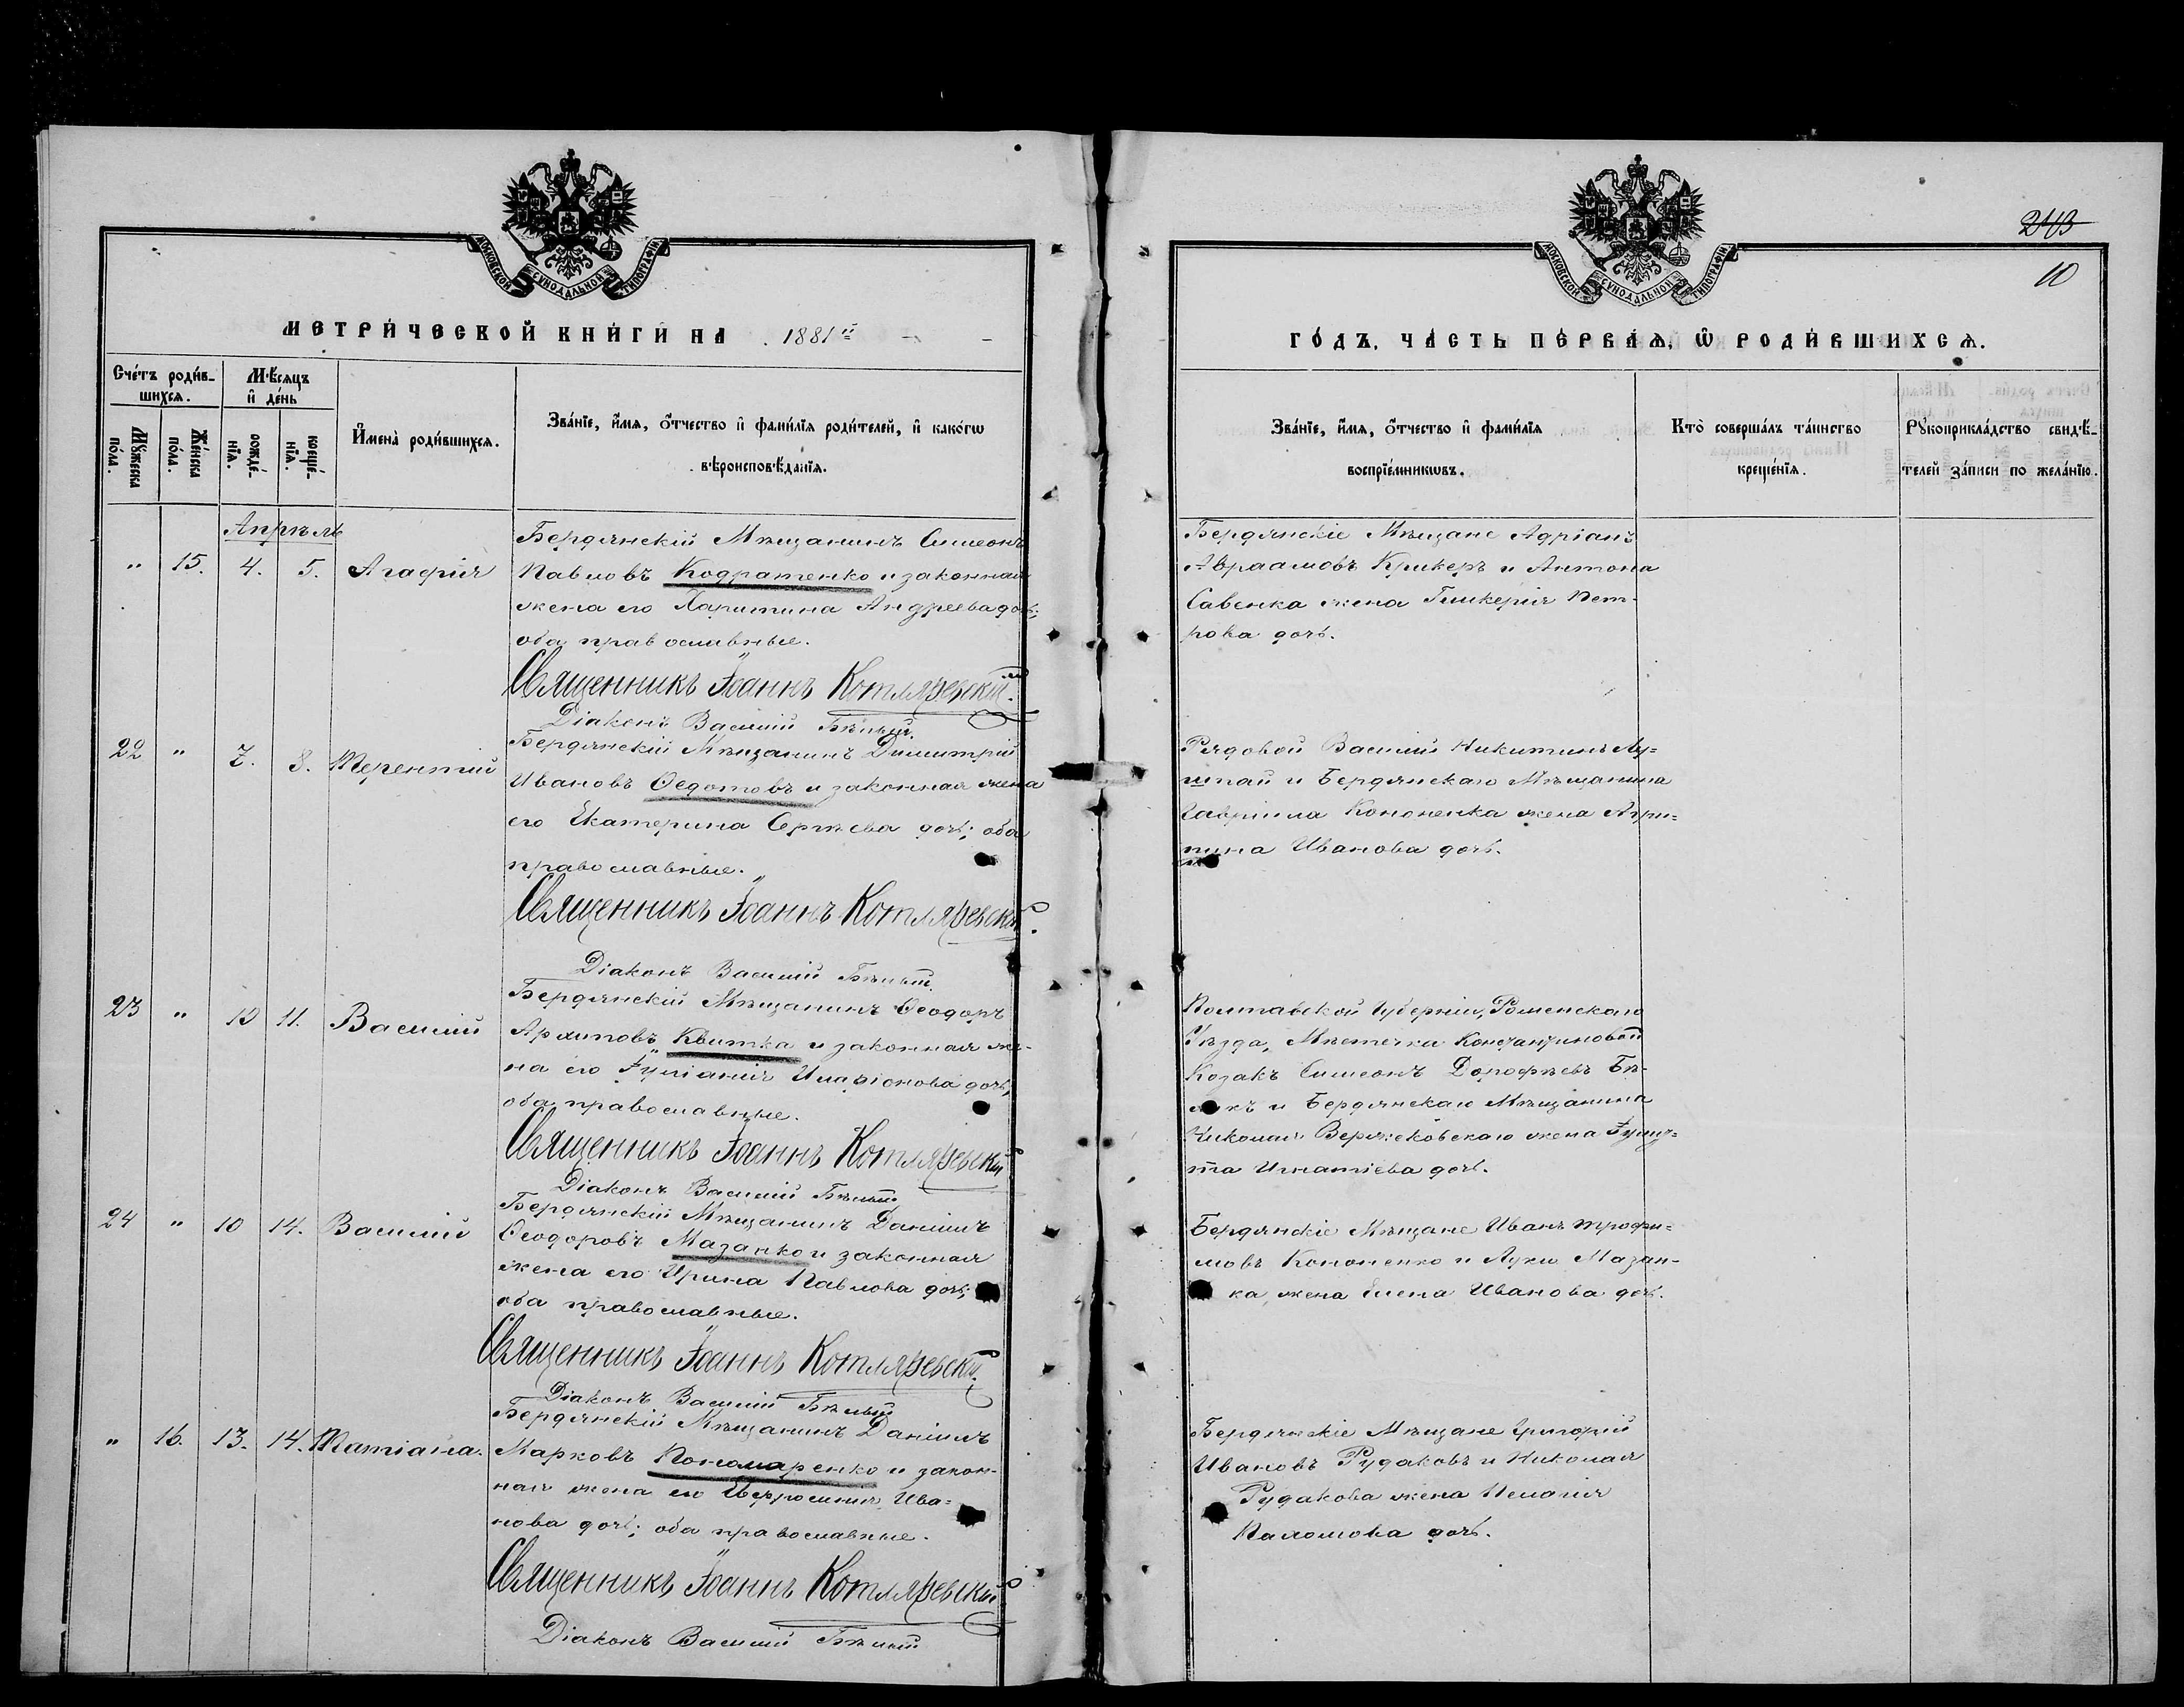 МОСКОВСКОЙ СѴНОДАЛЬНОЙ ТИПОГРАФІИ
МЕТРИ́ЧЕСКОЙ КНИ́ГИ НА 1881й
Сче́тъ роди́в-
шихсѧ.
Мѣ́сѧцъ
и҆ де́нь
Мꙋ́жеска
по́ла.
Же́нска
по́ла.
рожде́-
нїѧ.
креще́-
нїѧ.
И҆мена̀ роди́вшихсѧ.
Зва́нїе, и҆́мѧ, ѻ҆́тчество и҆ фами́лїѧ роди́телей, и҆ како́гѡ
вѣроисповѣ́данїѧ.
Апрѣль
" 15. 4. 5. Агафія
Бердянскій Мѣщанинъ Симеонъ
Павловъ Кодратенко и законная
жена его Харитина Андреева дочь;
оба православные.
Священникъ Іоаннъ Котляревскій.
Діаконъ Василій Бѣлый.
22 " 7. 8. Терентій
Бердянскій Мѣщанинъ Димитрій
Ивановъ Ѳедотовъ и законная жена
его Екатерина Сергѣева дочь; оба
православные.
Священникъ Іоаннъ Котляревскій.
Діаконъ Василій Бѣлый.
23 " 10 11. Василій
Бердянскій Мѣщанинъ Ѳеодоръ
Архиповъ Квитка и законная же-
на его Іуліанія Иларіонова дочь,
оба православные.
Священникъ Іоаннъ Котляревскій
Діаконъ Василій Бѣлый
24 " 10 14. Василій
Бердянскій Мѣщанинъ Даніилъ
Ѳеодоровъ Мазанко и законная
жена его Ирина Павлова дочь;
оба православные.
Священникъ Іоаннъ Котляревскій.
Діаконъ Василій Бѣлый
" 16. 13. 14. Татіана.
Бердянскій Мѣщанинъ Даніилъ
Марковъ Пономаренко и закон-
ная жена его Евфросинія Ива-
нова дочь; оба православные.
Священникъ Іоаннъ Котляревскій
Діаконъ Василій Бѣлый
243
10
МОСКОВСКОЙ СѴНОДАЛЬНОЙ ТИПОГРАФІИ
ГО́ДЪ. ЧА́СТЬ ПЕ́РВАѦ, Ѡ҆ РОДИ́ВШИХСѦ.
Зва́нїе, и҆́мѧ, ѻ҆́тчество и҆ фами́лїѧ
воспрїе́мникѡвъ.
Кто̀ соверша́лъ та́инство
креще́нїѧ.
Рꙋкоприкла́дство свидѣ́-
телей за́писи по жела́нїю.
Бердянскіе Мѣщане Адріанъ
Авраамовъ Крикеръ и Антона
Савенка жена Гликерія Пет-
рова дочь.
Рядовой Василій Никитинъ Лу=
шпай и Бердянскаго Мѣщанина
Гавріила Кононенка жена Агри=
пина Иванова дочь.
Полтавской Губерніи, Роменскаго
Уѣзда, Мѣстечка Константиновой
Козакъ Симеонъ Дорофѣевъ Бѣ-
и Бердянскаго Мѣщанина
Николая Вержековскаго жена
та Игнатіева дочь.
Бердянскіе Мѣщане Иванъ Трофи=
мовъ Кононенко и Луки Мазан-
ка, жена Елена Иванова дочь.
Бердянскіе Мѣщане Григорій
Ивановъ Рудаковъ и Николая
Рудакова жена Пелагія
дочь.